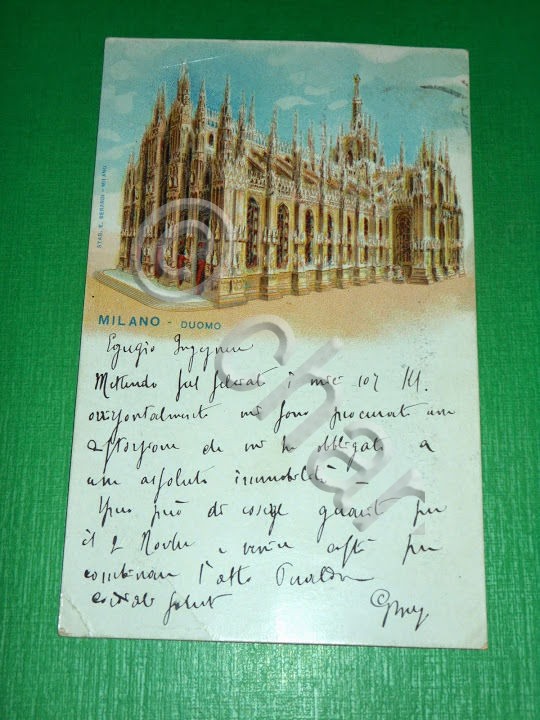 STAB. E. BERARDI - MILANO
MILANO - DUOMO
Egregio Ingegnere
Mettendo sul selciato i miei 107 Kl.
orizzontalmente mi sono procurato una
distorsione che mi ha obbligato a
una assoluta immobilità -
Spero però di essere guarito per
il 2 Novbre e venire costì per
combinare l'atto
cordiali saluti
© char